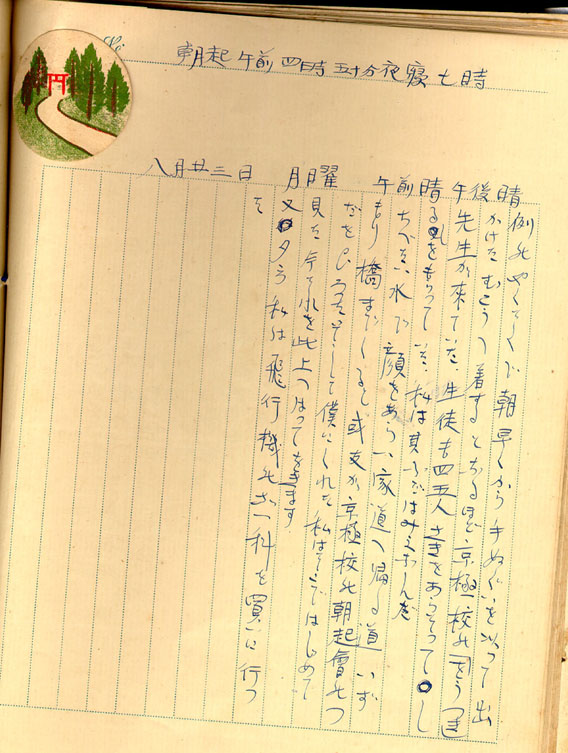 朝起午前四時五十分夜寝七時
八月廿三日
月曜
午前晴
午後晴
例のやくそくで朝早くから手ぬぐいを以って出
かけた むこうへ着するとなるほど京極校の「どうつき」
先生が来ていた。生徒も四五人さきをあらそって し
るしをもらっていた。私は其 ではみえなんだ
ちべたい水で顔をあらい家道へ帰る道いず
もり橋まで くると或友が京極校の朝起會のつ
だをひろったそうして僕にくれた 私はそこではじめて
見た 今それを此上へはってをきます
又 夕方私は飛行機のざい科を買に行っ
た